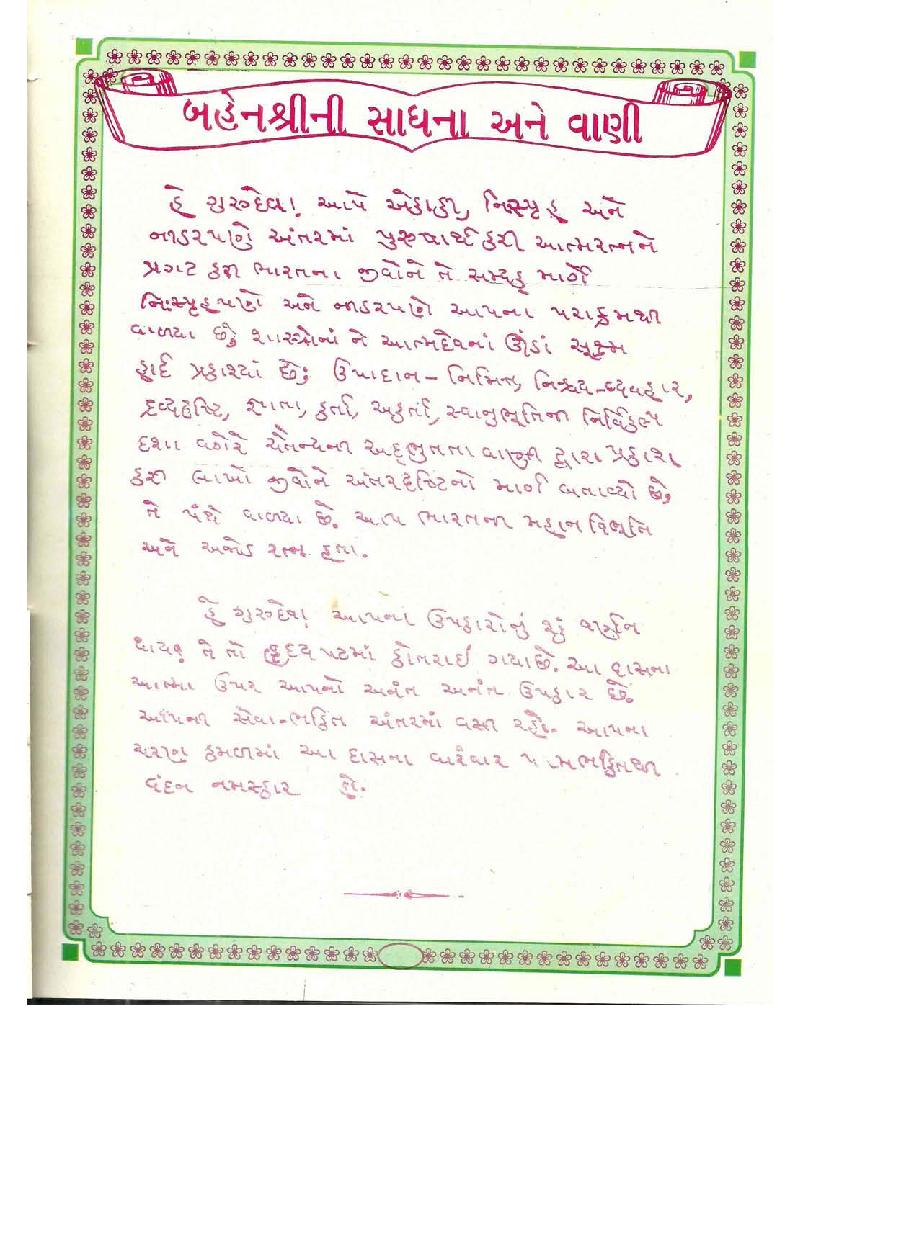 બહેનશ્રીની સાધના અને વાણી
હે ગુરુદેવ! આપે એકાકી, નિસ્પૃહ અને
નીડરપણે અંતરમાં પુરુષાર્થ કરી આત્મરત્નને
પ્રગટ કરી ભારતના જીવોને તે સમ્યક્ માર્ગે
નિઃસ્પૃહપણે અને નીડરપણે આપના પરાક્રમથી
વાળ્યા છે; શાસ્ત્રોનાં ને આત્મદેવનાં ઊંડાં સૂક્ષ્મ
હાર્દ પ્રકાશ્યાં છે; ઉપાદાન–નિમિત્ત, નિશ્ચય–વ્યવહાર,
દ્રવ્યદૃષ્ટિ, જ્ઞાતા, કર્તા, અકર્તા, સ્વાનુભૂતિની નિર્વિકલ્પ
દશા વગેરે ચૈતન્યની અદ્ભુતતા વાણી દ્વારા પ્રકાશ
કરી લાખો જીવોને અંતરદૃષ્ટિનો માર્ગ બતાવ્યો છે,
તે પંથે વાળ્યા છે. આપ ભારતના મહાન વિભૂતિ
અને અજોડ રત્ન હતા.
હે ગુરુદેવ! આપના ઉપકારોનું શું વર્ણન
થાય? તે તો હૃદયપટમાં કોતરાઈ ગયા છે. આ દાસના
આત્મા ઉપર આપનો અનંત અનંત ઉપકાર છે.
આપની સેવા-ભક્તિ અંતરમાં વસી રહો. આપના
ચરણ કમળમાં આ દાસના વારંવાર પરમભક્તિથી
વંદન નમસ્કાર હો.